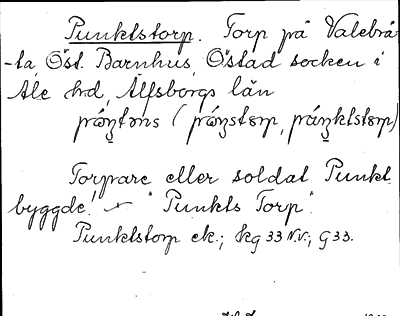 Punktstorp. Torp på Valebrå-
-ta, Öst. Barnhus, Östad socken i
Ale hd, Älfsborgs län
Torpare eller soldat Punkt
byggde! "Punkts Torp".
Punktstorp ek.; kg 33 N.V.; G 33.